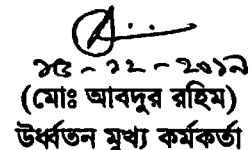 - ১২ - ২০১৯
(মোঃ আবদুর রহিম)
উর্ধ্বতন মুখ্য কর্মকর্তা